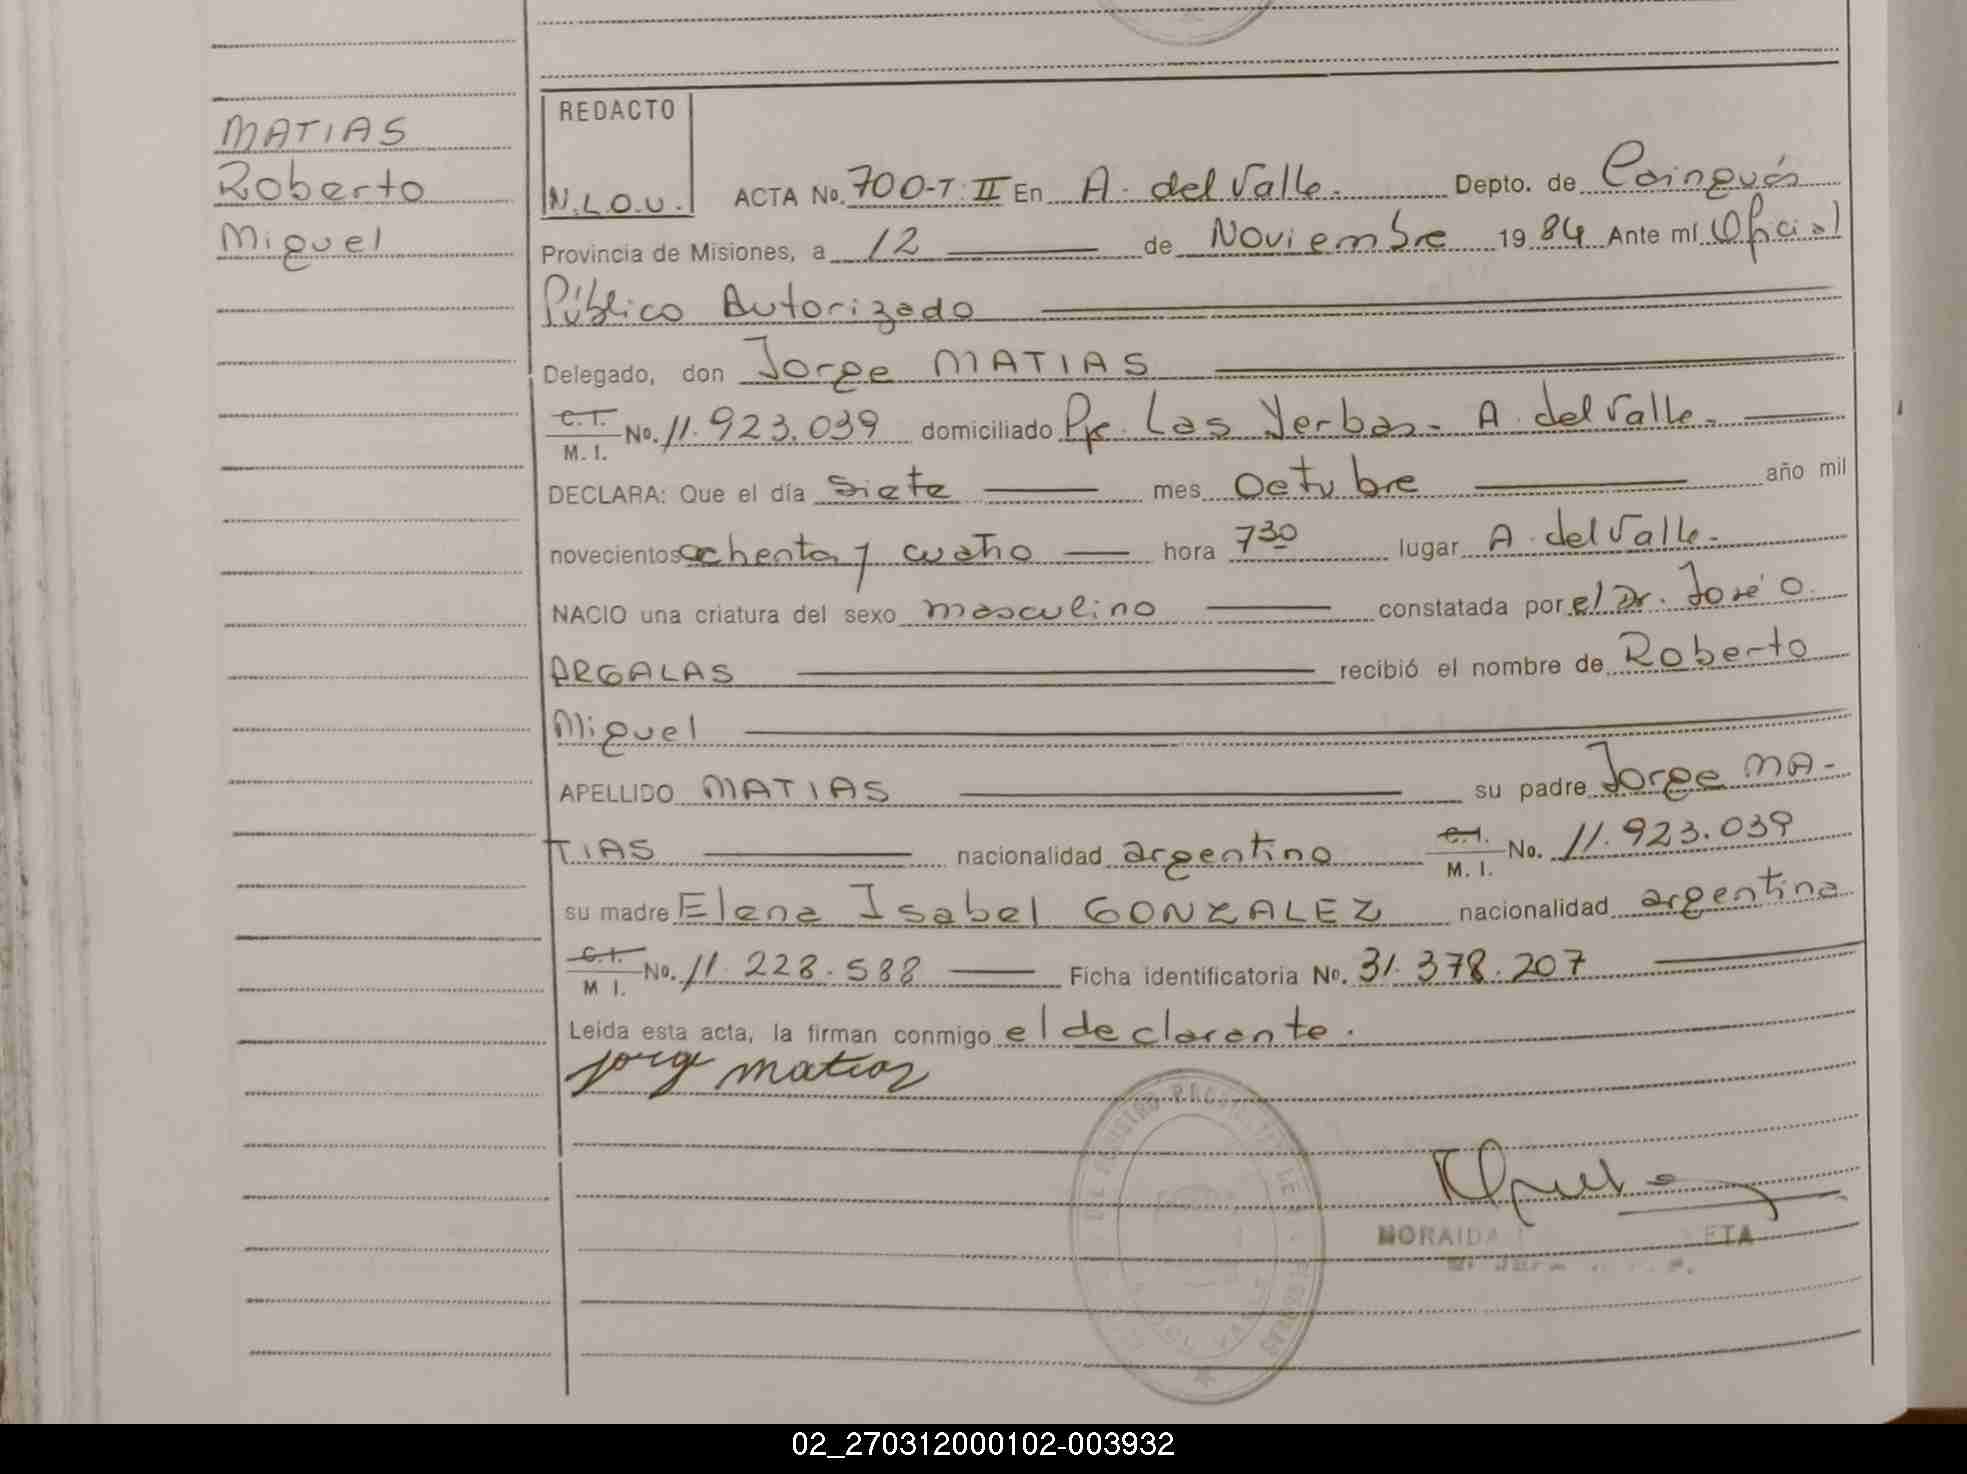 MATIAS
Roberto
Miguel
REDACTO
N.L.O.U.
ACTA No. 700-T: II En A. del Valle. Depto. de Cainguás
Provincia de Misiones, a 12 de Noviembre 19 84 Ante mí Oficial
Público Autorizado
Delegado, don Jorge MATIAS
C.I. M. I. No. 11.923.039 domiciliado Pje. Las Yerbas- A. del Valle.
DECLARA: Que el día siete mes octubre año mil
novecientos ochenta y cuatro hora 7 30 lugar A. del Valle.
NACIO una criatura del sexo masculino constatada por el Dr. José O.
ARGALAS recibió el nombre de Roberto
Miguel
APELLIDO MATIAS su padre Jorge MA-
TIAS nacionalidad argentino C.I. M. I. No. 11.923.039
su madre Elena Isabel GONZALEZ nacionalidad argentina
C.I. M I. No. 11.228.588 Ficha identificatoria No. 31.378.207
Leida esta acta, la firman conmigo el declarante.
jorge matias
NORAIDA
02_270312000102-003932